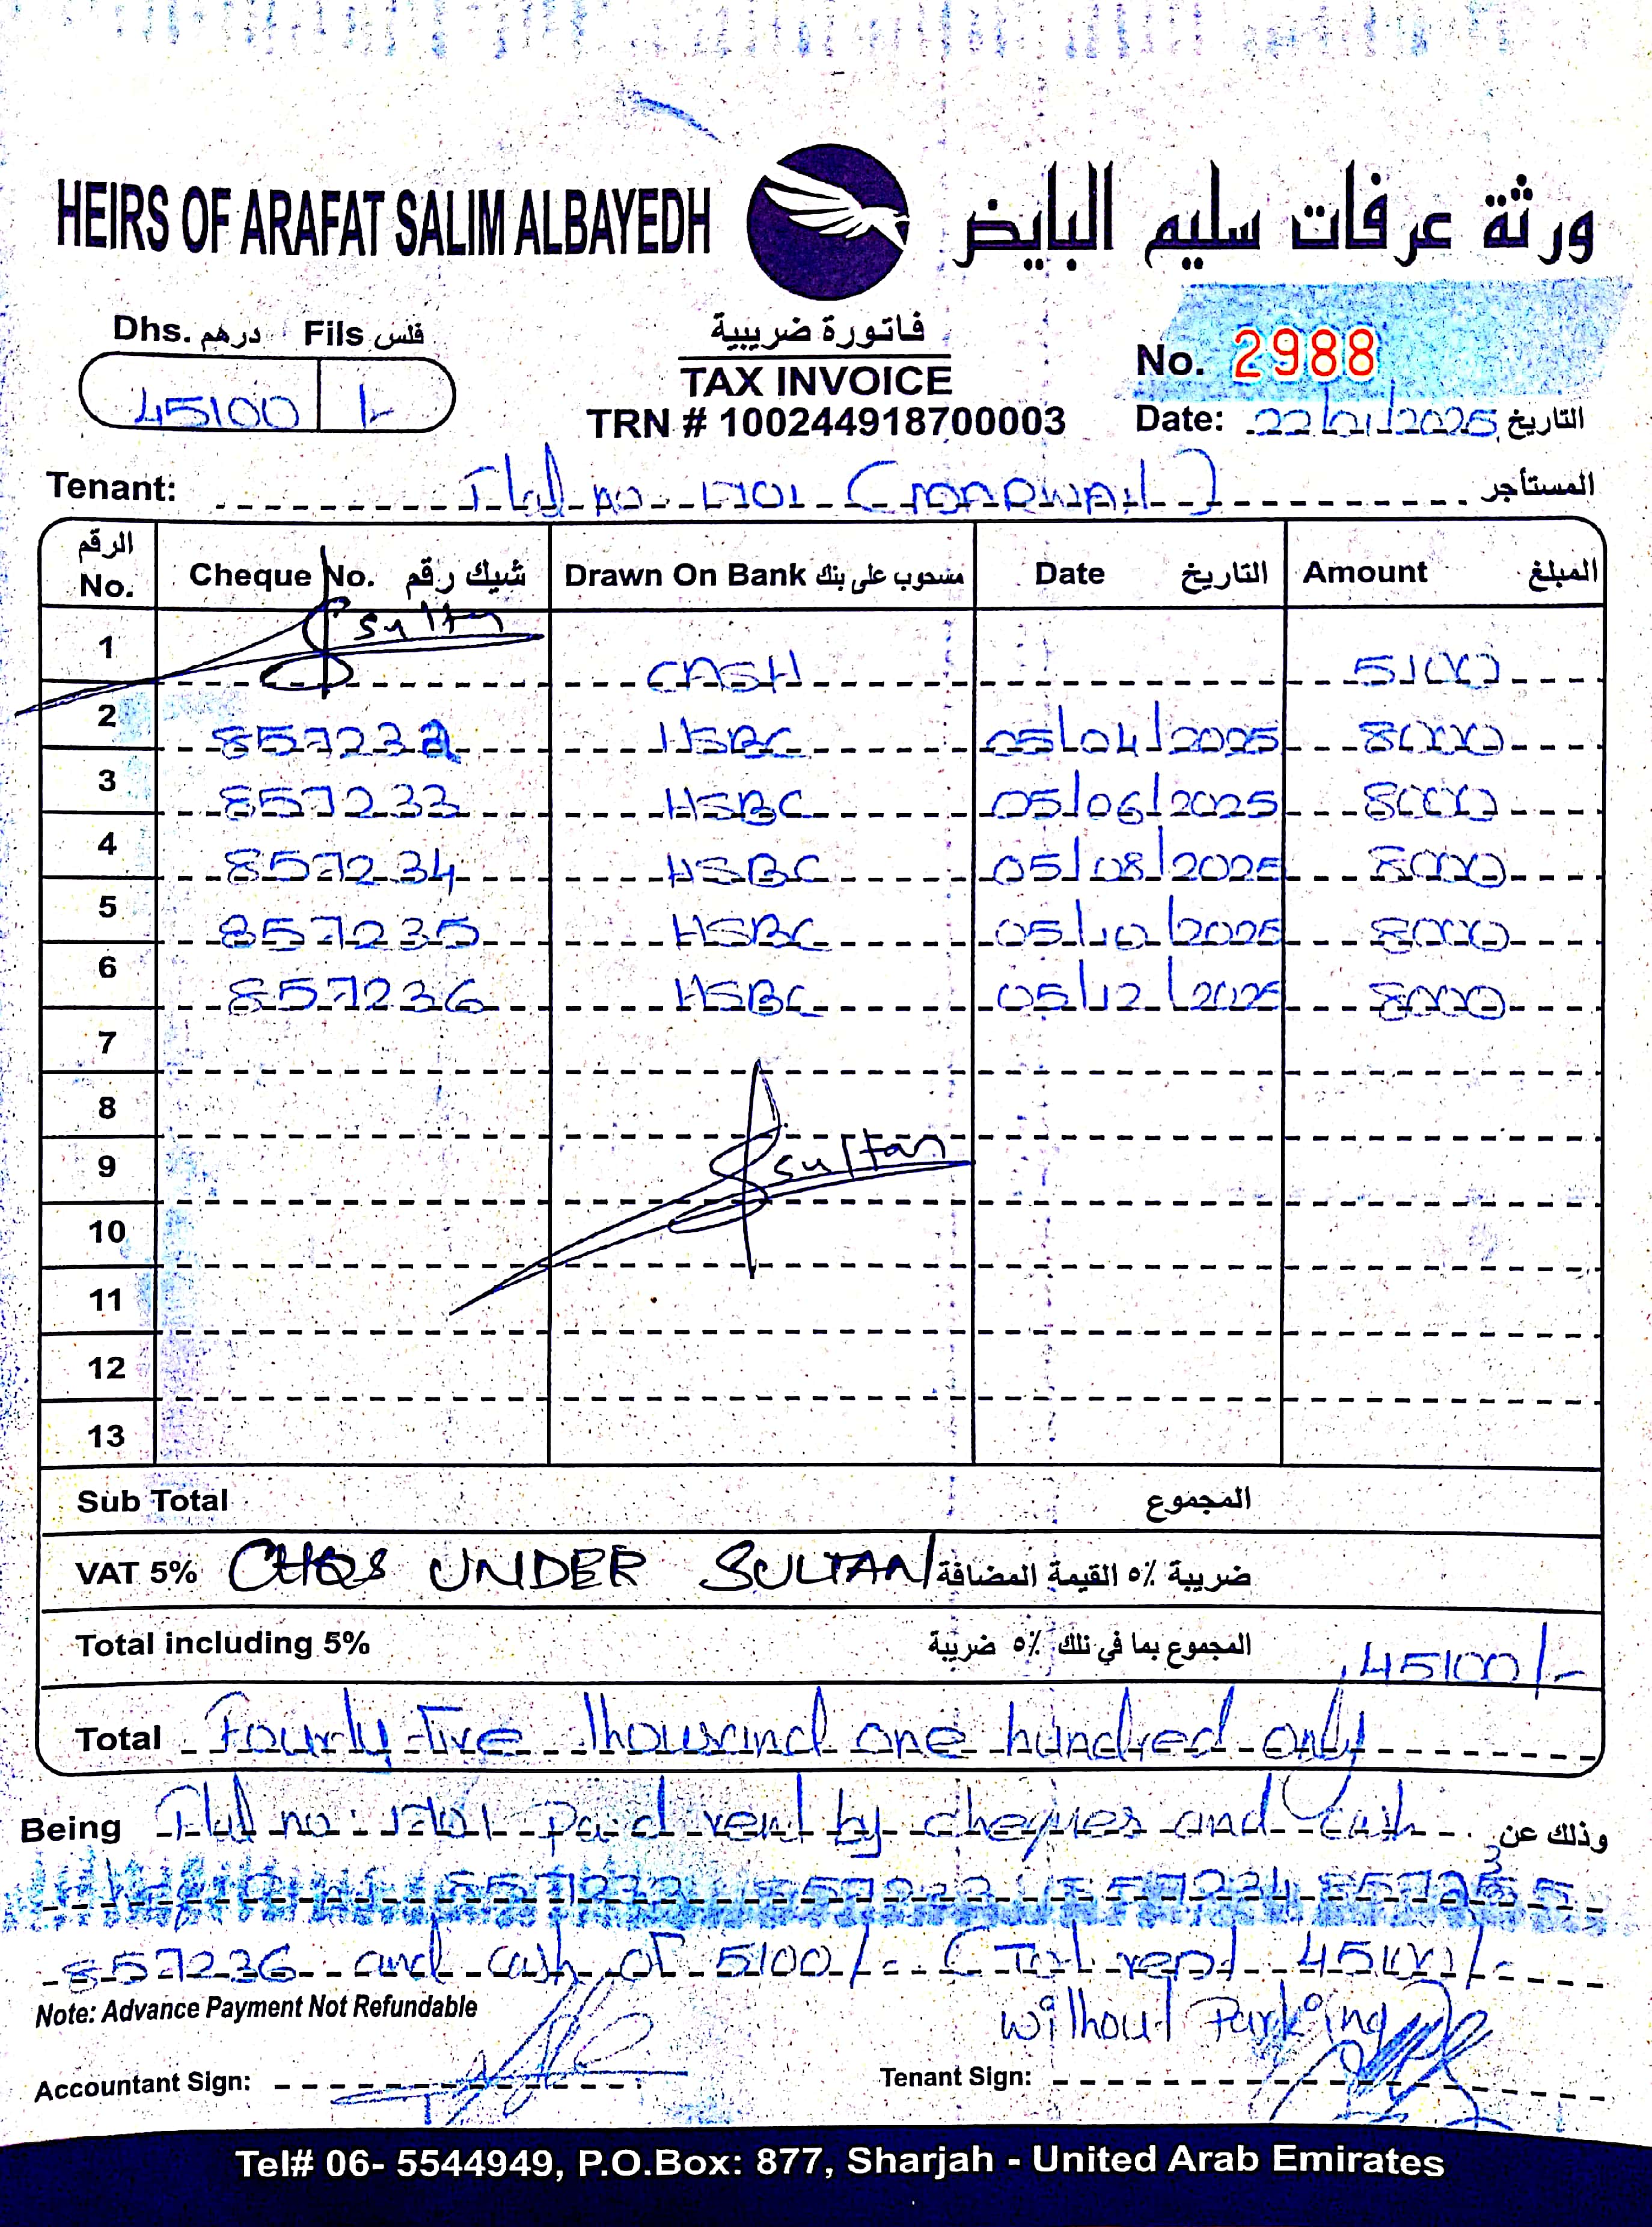 HEIRS OF ARAFAT SALIM ALBAYEDH ورثة عرفات سليم البايض
Dhs. درهم Fils فلس
45100 /-
فاتورة ضريبية
TAX INVOICE
TRN # 100244918700003
No. 2988
Date: 22/01/2025 التاريخ
Tenant: Flat no 1701 المستأجر
الرقم No. Cheque No. شيك رقم Drawn On Bank مسحوب على بنك Date التاريخ Amount المبلغ
Sultan
1 CASH 5100
2 857232 HSBC 05/04/2025 8000
3 857233 HSBC 05/06/2025 8000
4 857234 HSBC 05/08/2025 8000
5 857235 HSBC 05/10/2025 8000
6 857236 HSBC 05/12/2025 8000
7
8
9 Sultan
10
11
12
13
Sub Total المجموع
VAT 5% CHQS UNDER SULTAN ضريبة ٥% القيمة المضافة
Total including 5% المجموع بما في تلك ٥% ضريبة 45100/-
Total Fourty Five thousand one hundred only
Being Flat no: 1701 Paid rent by cheques and Cash وذلك عن
857232 857233 857234 857235
857236 and cash of 5100/- (Total rent 45100/-
without Parking)
Note: Advance Payment Not Refundable
Accountant Sign: Tenant Sign:
Tel# 06- 5544949, P.O.Box: 877, Sharjah - United Arab Emirates